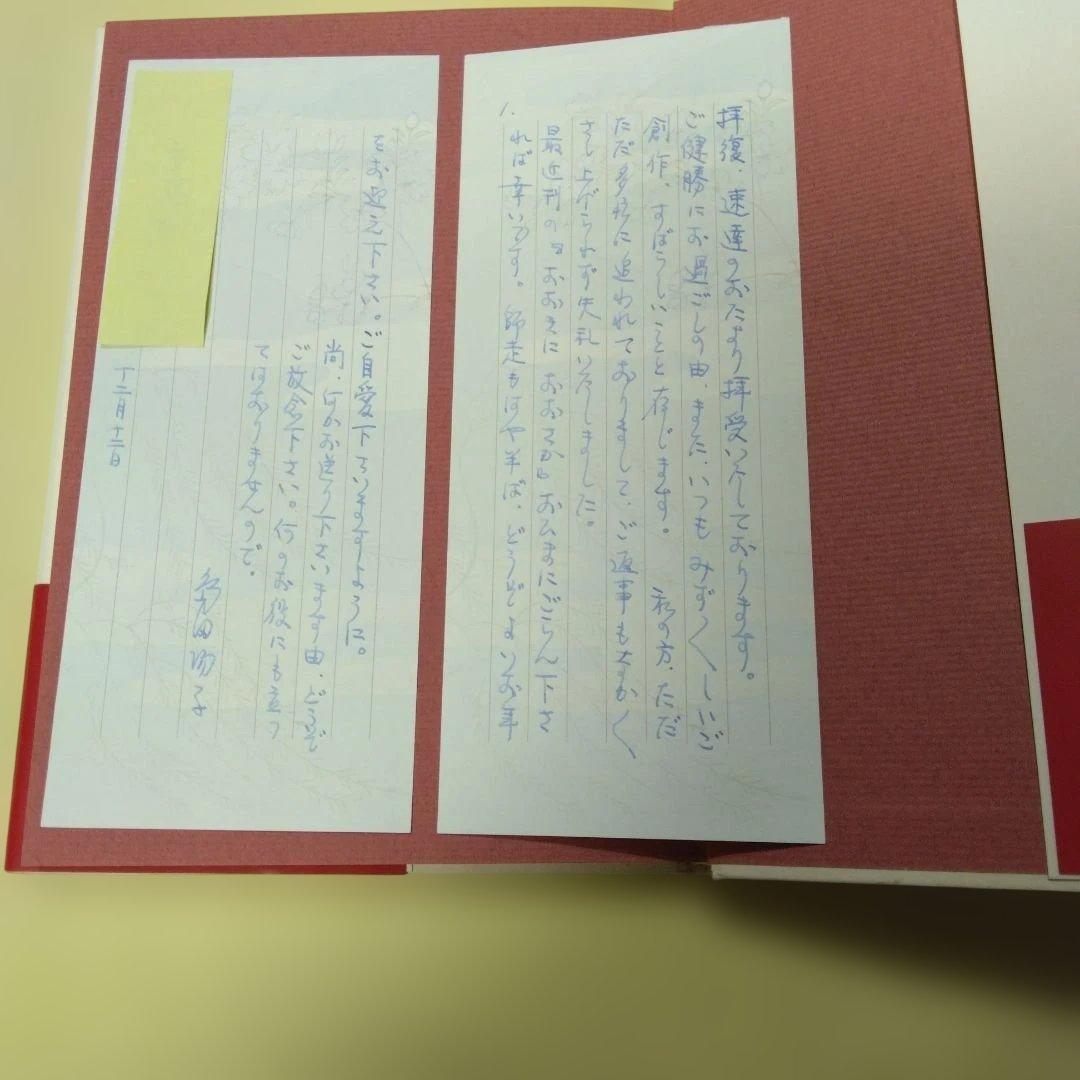 拝復、速達のおたより拝受いたしております。
ご健勝にお過ごしの由、また、いつもみずみずしいご
創作、すばらしいことと存じます。 私の方、ただ
ただ多忙に追われておりまして、ご返事もなかなか
さし上げられず失礼いたしました。
最近刊の
れば幸いです。師走もはや半ば、どうぞよいお年
1.
をお迎え下さい。ご自愛下さいますように。
尚、何かお送り下さいます由、どうぞ
ご放念下さい。何のお役にも立つ
てはおりませんので。
十二月十二日